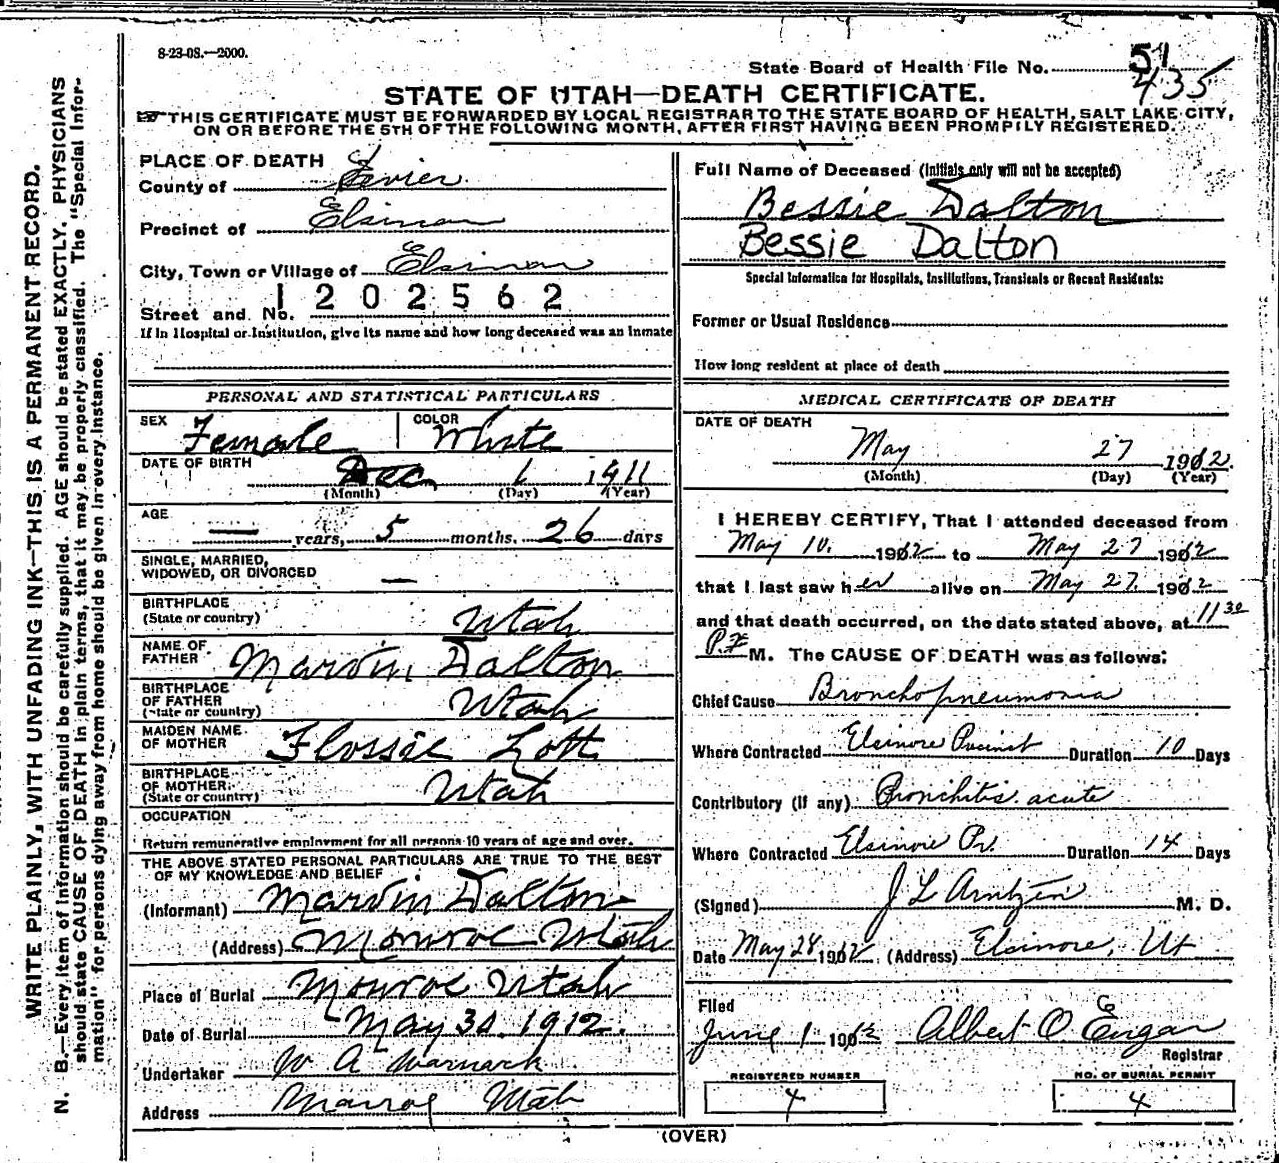 8-23-08.—2000.
State Board of Health File No. 51
435
STATE OF UTAH—DEATH CERTIFICATE.
THIS CERTIFICATE MUST BE FORWARDED BY LOCAL REGISTRAR TO THE STATE BOARD OF HEALTH, SALT LAKE CITY,
ON OR BEFORE THE 5TH OF THE FOLLOWING MONTH, AFTER FIRST HAVING BEEN PROMPTLY REGISTERED.
WRITE PLAINLY, WITH UNFADING INK—THIS IS A PERMANENT RECORD.
N. B.—Every item of information should be carefully supplied. AGE should be stated EXACTLY. PHYSICIANS
should state CAUSE OF DEATH in plain terms, that it may be properly classified. The "Special Infor-
mation" for persons dying away from home should be given in every instance.
PLACE OF DEATH
County of Sevier
Precinct of Elsinore
City, Town or Village of Elsinore
1202562
Street and No.
If in Hospital or Institution, give its name and how long deceased was an inmate
PERSONAL AND STATISTICAL PARTICULARS
SEX Female COLOR White
DATE OF BIRTH Dec 1 1911
(Month) (Day) (Year)
AGE
— years, 5 months, 26 days
SINGLE, MARRIED,
WIDOWED, OR DIVORCED —
BIRTHPLACE
(State or country) Utah
NAME OF
FATHER Marvin Dalton
BIRTHPLACE
OF FATHER
(State or country) Utah
MAIDEN NAME
OF MOTHER Flossie Lott
BIRTHPLACE
OF MOTHER
(State or country) Utah
OCCUPATION
Return remunerative employment for all persons 10 years of age and over.
THE ABOVE STATED PERSONAL PARTICULARS ARE TRUE TO THE BEST
OF MY KNOWLEDGE AND BELIEF
(Informant) Marvin Dalton
(Address) Monroe Utah
Place of Burial Monroe Utah
Date of Burial May 30 1912.
Undertaker W A Warnock
Address Monroe Utah
Full Name of Deceased (Initials only will not be accepted)
Bessie Dalton
Bessie Dalton
Special Information for Hospitals, Institutions, Transients or Recent Residents:
Former or Usual Residence
How long resident at place of death
MEDICAL CERTIFICATE OF DEATH
DATE OF DEATH
May 27 1912.
(Month) (Day) (Year)
I HEREBY CERTIFY, That I attended deceased from
May 10. 1912 to May 27 1912
that I last saw her alive on May 27. 1912
and that death occurred, on the date stated above, at 11 30
P. M. The CAUSE OF DEATH was as follows:
Chief Cause Bronchopneumonia
Where Contracted Elsinore Precinct Duration 10 Days
Contributory (If any) Bronchitis. acute
Where Contracted Elsinore Pr. Duration 14 Days
(Signed) J L Arntzen M. D.
Date May 28 1912. (Address) Elsinore, Ut
Filed
June 1 1912 Albert O Engar
Registrar
REGISTERED NUMBER
4
NO. OF BURIAL PERMIT
4
(OVER)